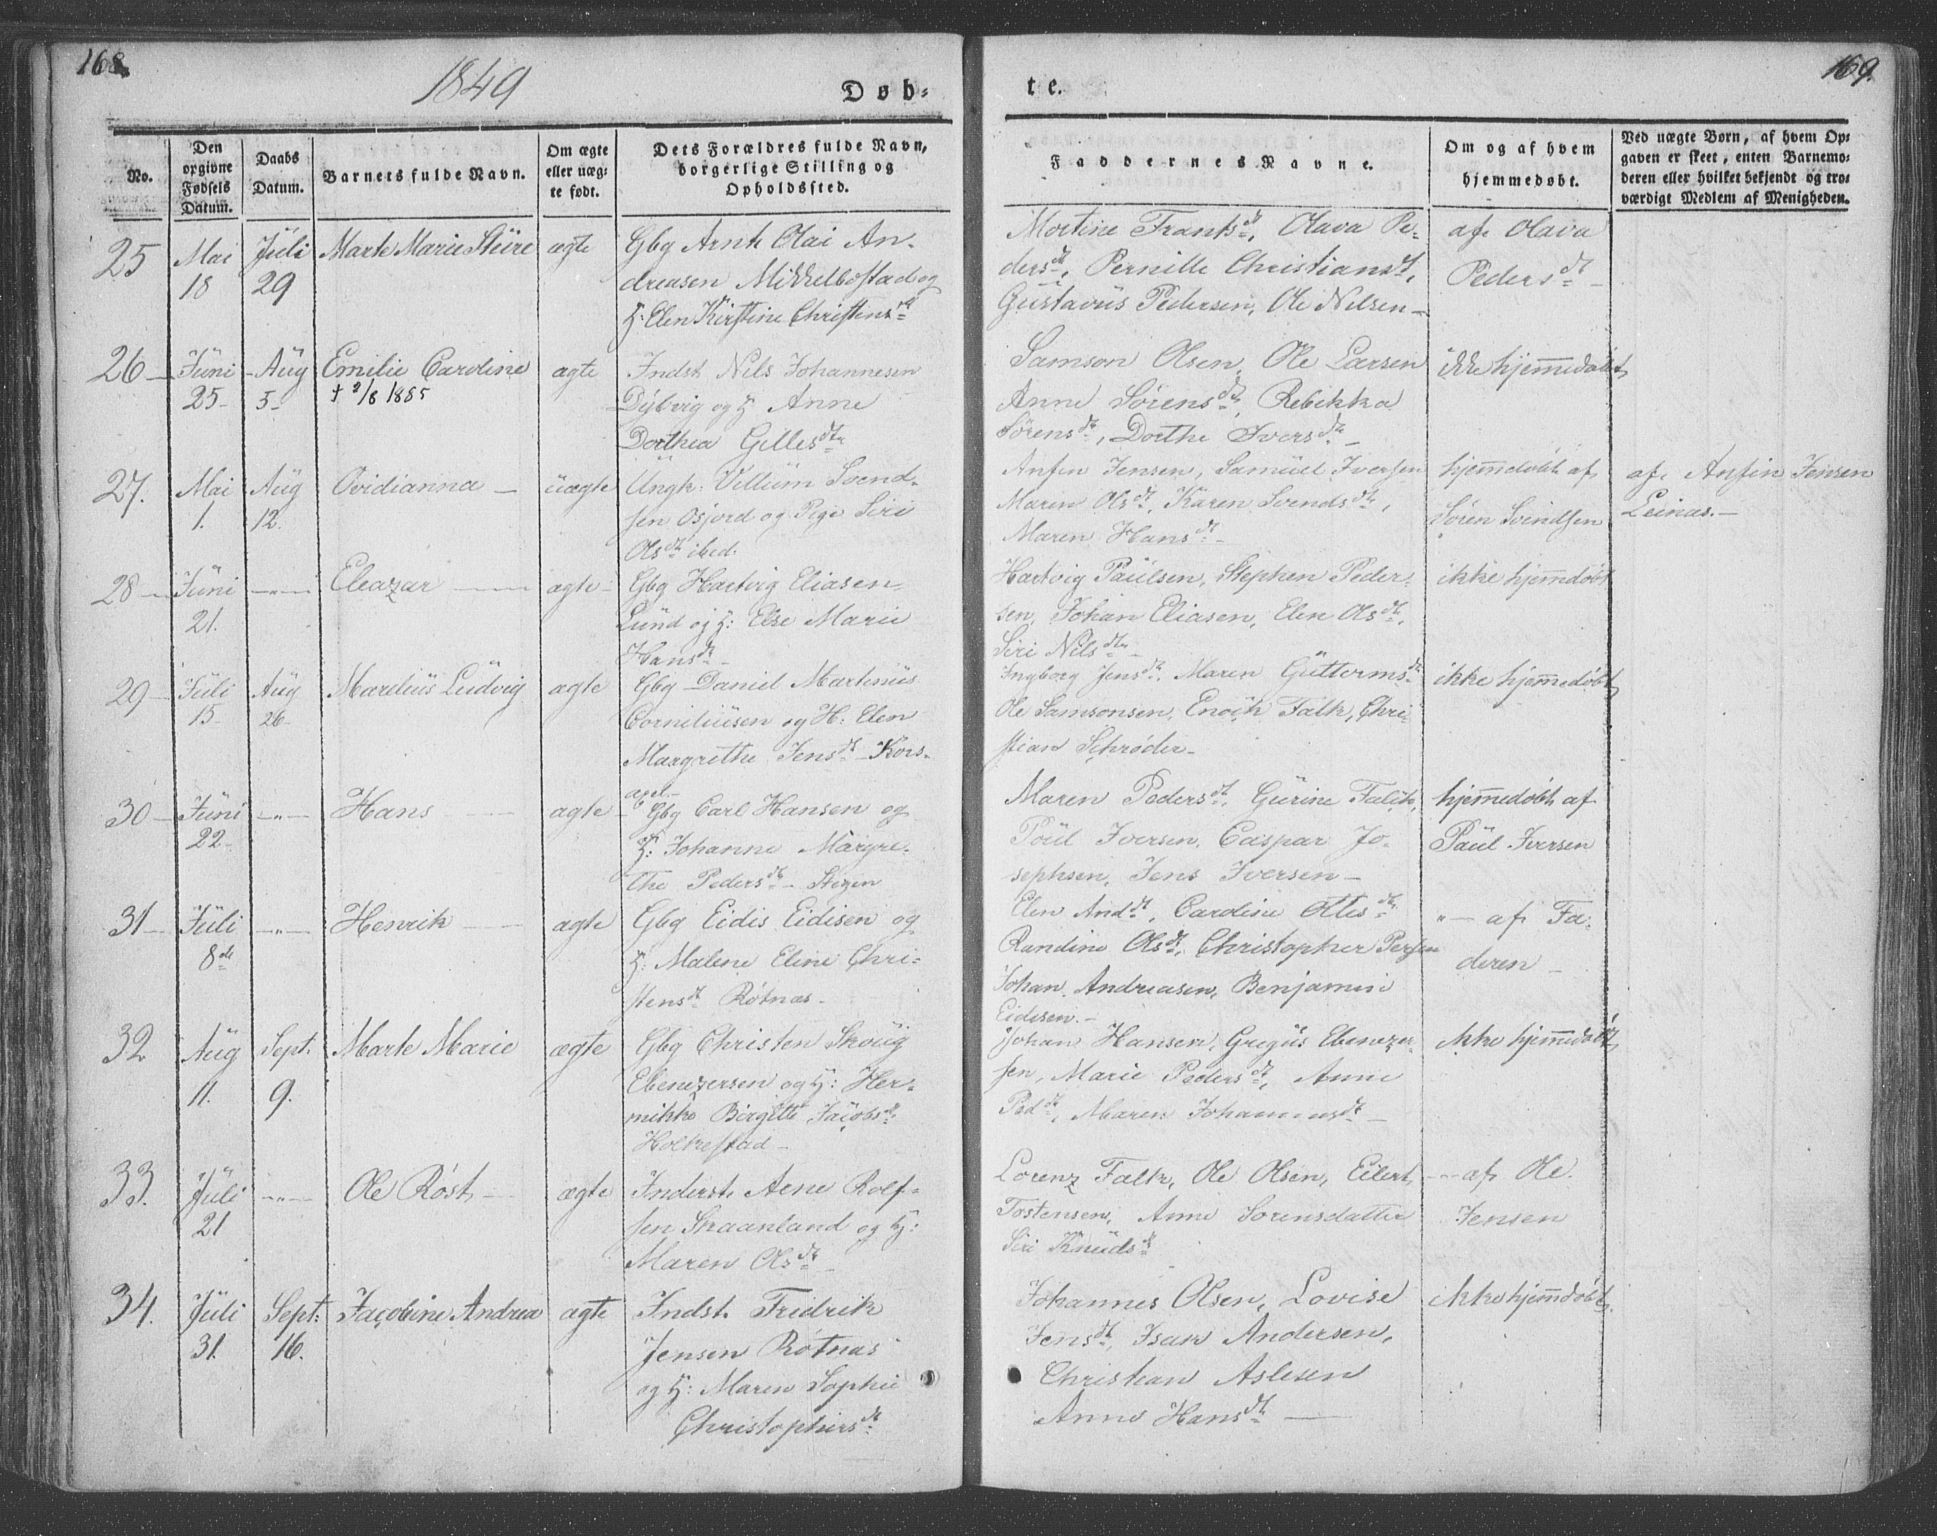 168.
1849
Døb-
No.
Den opgivne Fødsels Datum.
Daabs Datum.
Barnets fulde Navn.
Om ægte eller uægte født.
Dets Forældres fulde Navn, borgerlige Stilling og Opholdssted.
25
Mai 18
Juli 29
Marte Marie Stüre
ægte
Gbg Arnt Olai An-
dreasen Mikkelbostad og
H: Elen Kirstine Christensdt
26
Juni 25
Aug 5
Emilie Caroline
† 2/8 1885
ægte
Indst Nils Johannesen
Dybvig og H Anne
Dorthea Gillesdtr
27.
Mai 1.
Aug 12.
Ovidianna
uægte
Ungk: Villum Svend-
sen Osjord og Pige Siri
Olsdt ibid.
28
Juni 21.
-"-
Eleazar
ægte
Gbg Hartvig Eliasen
Lund og H: Else Marie
Hansdt
29
Juli 15
Aug 26
Marelius Ludvig
ægte
Gbg Daniel Martinus
Corneliusen og H: Elen
Margrethe Jensdt Kors-
30
Juni 22
-"-
Hans
ægte
Gbg Carl Hansen og
H: Johanne Margre-
the Pedersdt Steen
31
Juli 8de
-"-
Henrik
ægte
Gbg Eidis Eidisen og
H: Malene Eline Chri-
stensdt Røtnas
32
Aug 11.
Sept. 9.
Marte Marie
ægte
Gbg Christen Skoug
Ebenezersen og H: Her-
mikke Birgitte Jacobsdt
Holkestad
33.
Juli 21
-"-
Ole Røst
ægte
Inderst Arne Rolf-
sen Skaanland og H:
Maren Olsdt
34.
Juli 31.
Sept: 16.
Jacobine Andrea
ægte
Indst Fridrik
Jensen Røtnas
og H: Maren Sophie
Christophersdt
169.
te.
Faddernes Navne.
Om og af hvem hjemmedøbt.
Ved uægte Børn, af hvem Opgaven er skeet, enten Barnemoderen eller hvilket bekjendt og troværdigt Medlem af Menigheden.
Mortine Frantsdt, Olava Pe-
dersdt, Pernille Christiansdt,
Gustavus Pedersen, Ole Nilsen
af Olava
Pedersdt
Samson Olsen, Ole Larsen
Anne Sørensdt, Rebikka
Sørensdt, Dorthe Iversdt
ikke hjemmedøbt
Anfin Jensen, Samuel Iversen
Maren Olsdt, Karen Svendsdt,
Maren Hansdt
hjemmedøbt af
Søren Svendsen
af Anfin Jensen
Leinas.
Hartvig Paulsen, Stephen Peder-
sen, Johan Eliasen, Elen Olsdt,
Siri Nilsdtr
ikke hjemmedøbt
Ingborg Jensdt, Maren Guttormsdt
Ole Samsonsen, Enoch Falk, Chri-
stian Schrøder
ikke hjemmedøbt
Maren Pedersdt, Gurine Falck,
Poul Iversen, Caspar Jo-
sephsen, Jens Iversen
hjemmedøbt af
Paul Iversen
Elen Anddt, Caroline Ottesdt
Randine Olsdt, Christopher Persen
Johan Andreasen, Benjamin
Eidisen.
"- af Fa-
deren
Johan Hansen, Gregus Ebenezer-
sen, Marie Pedersdt, Anne
Peddt, Maren Johannesdt
ikke hjemmedøbt
Lorenz Falk, Ole Olsen, Eilert
Tostensen, Anne Sorensdatter
Siri Knudsdt
-- af Ole
Jensen
Johannes Olsen, Lovise
Jensdt, Isak Andersen,
Christian Aslesen
Anne Hansdt
ikke hjemmdøbt